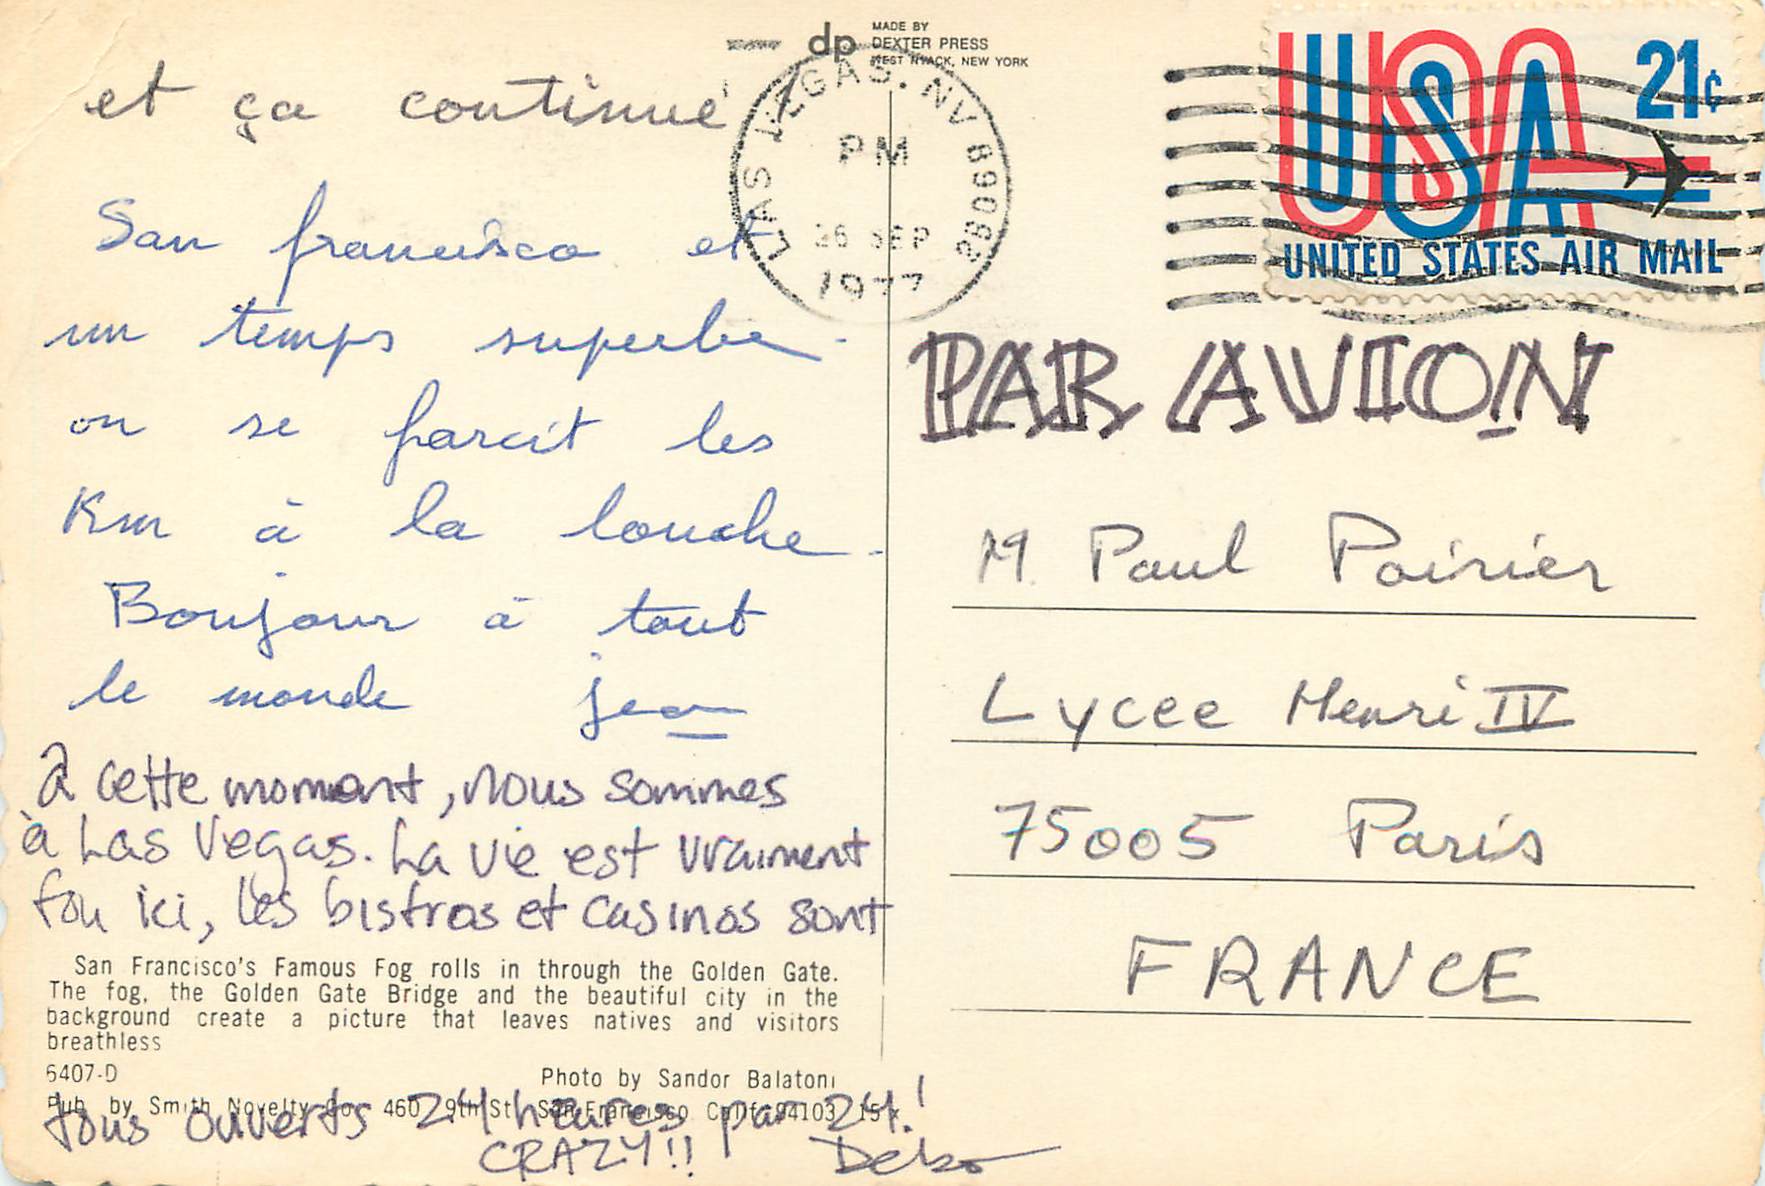 et ça continue !
San francisco et
un temps superbe.
on se farcit les
Km à la louche.
Bonjour à tout
le monde jean
à cette moment, nous sommes
à Las Vegas. La vie est vraiment
fou ici, les bistros et casinos sont
San Francisco's Famous Fog rolls in through the Golden Gate.
The fog, the Golden Gate Bridge and the beautiful city in the
background create a picture that leaves natives and visitors
breathless
6407-D
Photo by Sandor Balatoni
Pub. by Smith Novelty Co., 460 9th St. San Francisco Calif. 94103
tous ouverts 24 heures par 24!
CRAZY!!
dp
MADE BY
DEXTER PRESS
WEST NYACK, NEW YORK
LAS VEGAS, NV
PM
26 SEP
1977
USA 21¢
UNITED STATES AIR MAIL
PAR AVION
M. Paul Poirier
Lycee Henri IV
75005 Paris
FRANCE